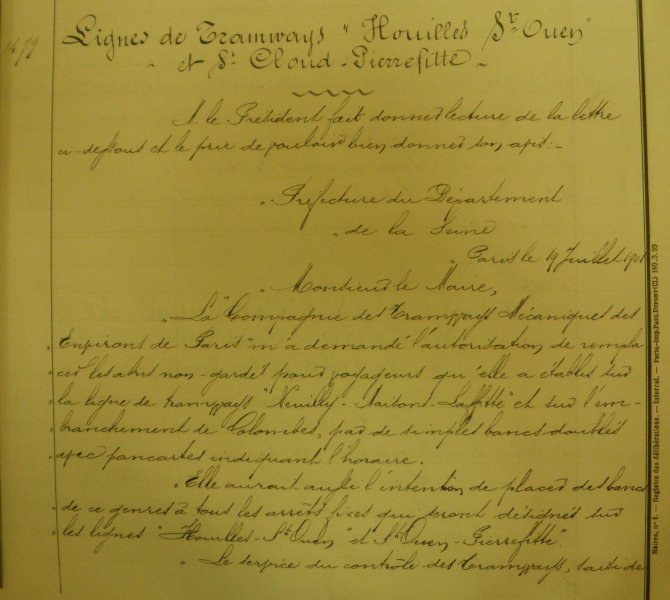 1677
Lignes de Tramways "Houilles St-Ouen"
- et St Cloud-Pierrefitte -
M. le Président fait donner lecture de la lettre
ci-dessous et le prie de vouloir bien donner son avis:-
"Préfecture du Département
" de la Seine
" Paris le 19 Juillet 1901
" Monsieur le Maire,
" La "Compagnie des Tramways Mécaniques des
" Environs de Paris" m'a demandé l'autorisation de rempla-
" cer les abris non-gardés pour voyageurs qu'elle a établis sur
" la ligne de tramways "Neuilly-Maisons-Laffitte" et sur l'em-
" branchement de Colombes, par de simples bancs doubles
" avec pancartes indiquant l'horaire.
" Elle aurait aussi l'intention de placer des bancs
" de ce genre à tous les arrêts fixes qui seront désignés sur
" les lignes "Houilles-St-Ouen" et "St-Ouen-Pierrefitte"
" Le service du contrôle des Tramways, saisi de
Mairies, n° 1. — Registre des délibérations. — Intercal. — Paris.-Imp. Paul Dupont (Cl.) 189.3.99